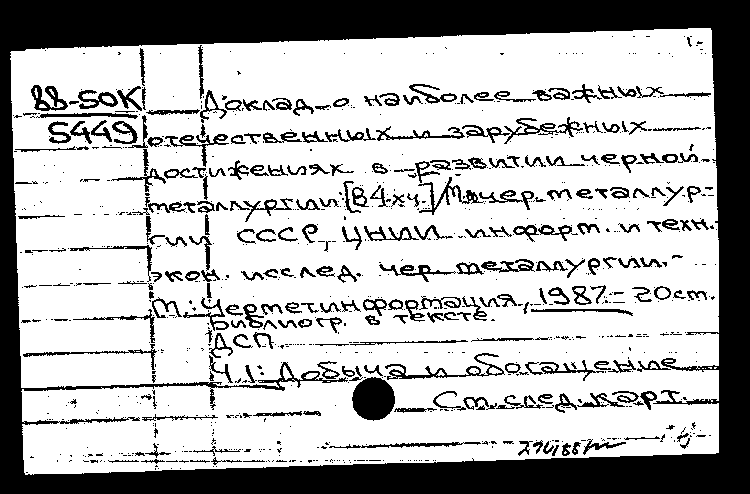 88-50К Доклад о наиболее важных
5449 отечественных и зарубежных
достижениях в развитии черной
металлургии: [В 4-х ч.] / М-во чер. металлур-
гии СССР, ЦНИИ информ. и техн.-
экон. исслед. чер. металлургии.-
М.: Черметинформация, 1987.- 20 см.
Библиогр. в тексте.
ДСП.
Ч.1: Добыча и обогащение
См. след. карт.